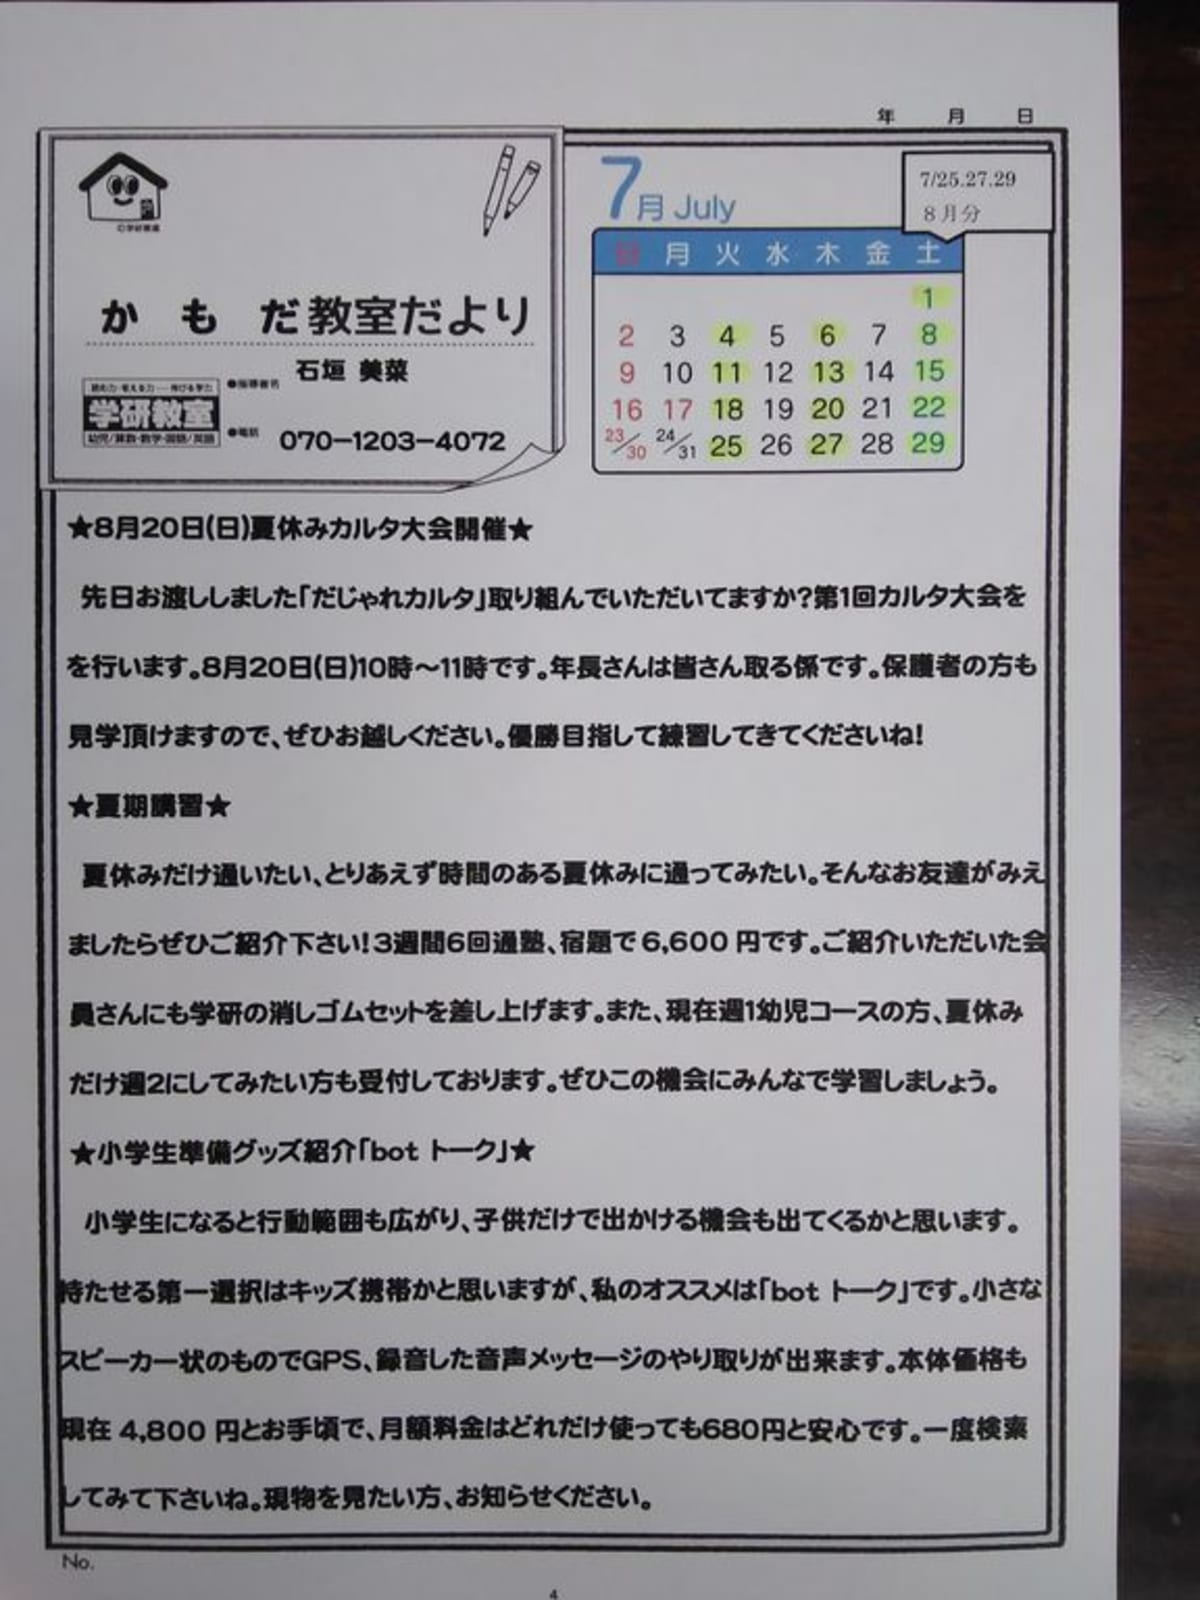 年 月 日
©学研教室
かもだ教室だより
●指導者名 石垣 美菜
読む力・考える力 伸びる学力
学研教室
幼児/算数・数学・国語/英語
●電話 070-1203-4072
7月 July
7/25.27.29
8月分
日 月 火 水 木 金 土
1
2 3 4 5 6 7 8
9 10 11 12 13 14 15
16 17 18 19 20 21 22
23/30 24/31 25 26 27 28 29
★8月20日(日)夏休みカルタ大会開催★
先日お渡ししました「だじゃれカルタ」取り組んでいただいてますか?第1回カルタ大会を
を行います。8月20日(日)10時~11時です。年長さんは皆さん取る係です。保護者の方も
見学頂けますので、ぜひお越しください。優勝目指して練習してきてくださいね!
★夏期講習★
夏休みだけ通いたい、とりあえず時間のある夏休みに通ってみたい。そんなお友達がみえ
ましたらぜひご紹介下さい!3週間6回通塾、宿題で 6,600 円です。ご紹介いただいた会
員さんにも学研の消しゴムセットを差し上げます。また、現在週1幼児コースの方、夏休み
だけ週2にしてみたい方も受付しております。ぜひこの機会にみんなで学習しましょう。
★小学生準備グッズ紹介「bot トーク」★
小学生になると行動範囲も広がり、子供だけで出かける機会も出てくるかと思います。
持たせる第一選択はキッズ携帯かと思いますが、私のオススメは「bot トーク」です。小さな
スピーカー状のものでGPS、録音した音声メッセージのやり取りが出来ます。本体価格も
現在 4,800 円とお手頃で、月額料金はどれだけ使っても680円と安心です。一度検索
してみて下さいね。現物を見たい方、お知らせください。
No.
4